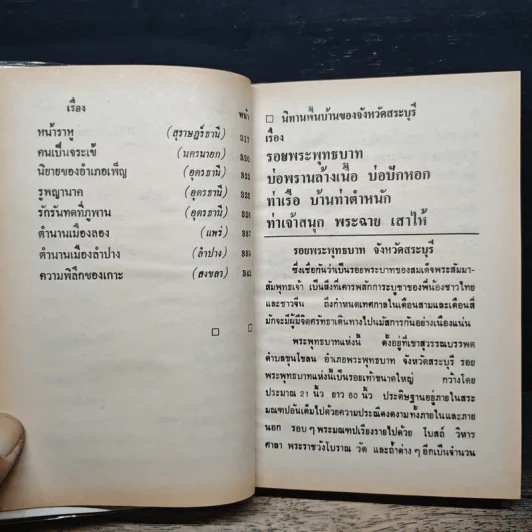 เรื่อง หน้า
หน้าราหู (สุราษฎร์ธานี) 317
คนเป็นจระเข้ (นครนายก) 320
นิยายของอำเภอเพ็ญ (อุดรธานี) 322
รูพญานาค (อุดรธานี) 325
รักรันทดที่ภูพาน (อุดรธานี) 326
ตำนานเมืองลอง (แพร่) 337
ตำนานเมืองลำปาง (ลำปาง) 339
ความพิลึกของเกาะ (สงขลา) 342
นิทานพื้นบ้านของจังหวัดสระบุรี
เรื่อง
รอยพระพุทธบาท
บ่อพรานล้างเนื้อ บ่อปักหอก
ท่าเรือ บ้านท่าตำหนัก
ท่าเจ้าสนุก พระฉาย เสาไห้
รอยพระพุทธบาท จังหวัดสระบุรี
ซึ่งเชื่อกันว่าเป็นรอยพระบาทของสมเด็จพระสัมมา-
สัมพุทธเจ้า เป็นสิ่งที่เคารพสักการะบูชาของพี่น้องชาวไทย
และชาวจีน ถึงกำหนดเทศกาลในเดือนสามและเดือนสี่
มักจะมีผู้มีจิตศรัทธาเดินทางไปนมัสการกันอย่างเนืองแน่น
พระพุทธบาทแห่งนี้ ตั้งอยู่ที่เขาสุวรรณบรรพต
ตำบลขุนโขลน อำเภอพระพุทธบาท จังหวัดสระบุรี รอย
พระพุทธบาทแห่งนี้เป็นรอยเท้าขนาดใหญ่ กว้างโดย
ประมาณ 21 นิ้ว ยาว 60 นิ้ว ประดิษฐานอยู่ภายในสระ
มณฑปอันเต็มไปด้วยความประณีตงดงามทั้งภายในและภาย
นอก รอบๆ พระมณฑปเรียงรายไปด้วย โบสถ์ วิหาร
ศาลา พระราชวังโบราณ วัด และถ้ำต่างๆ อีกเป็นจำนวน